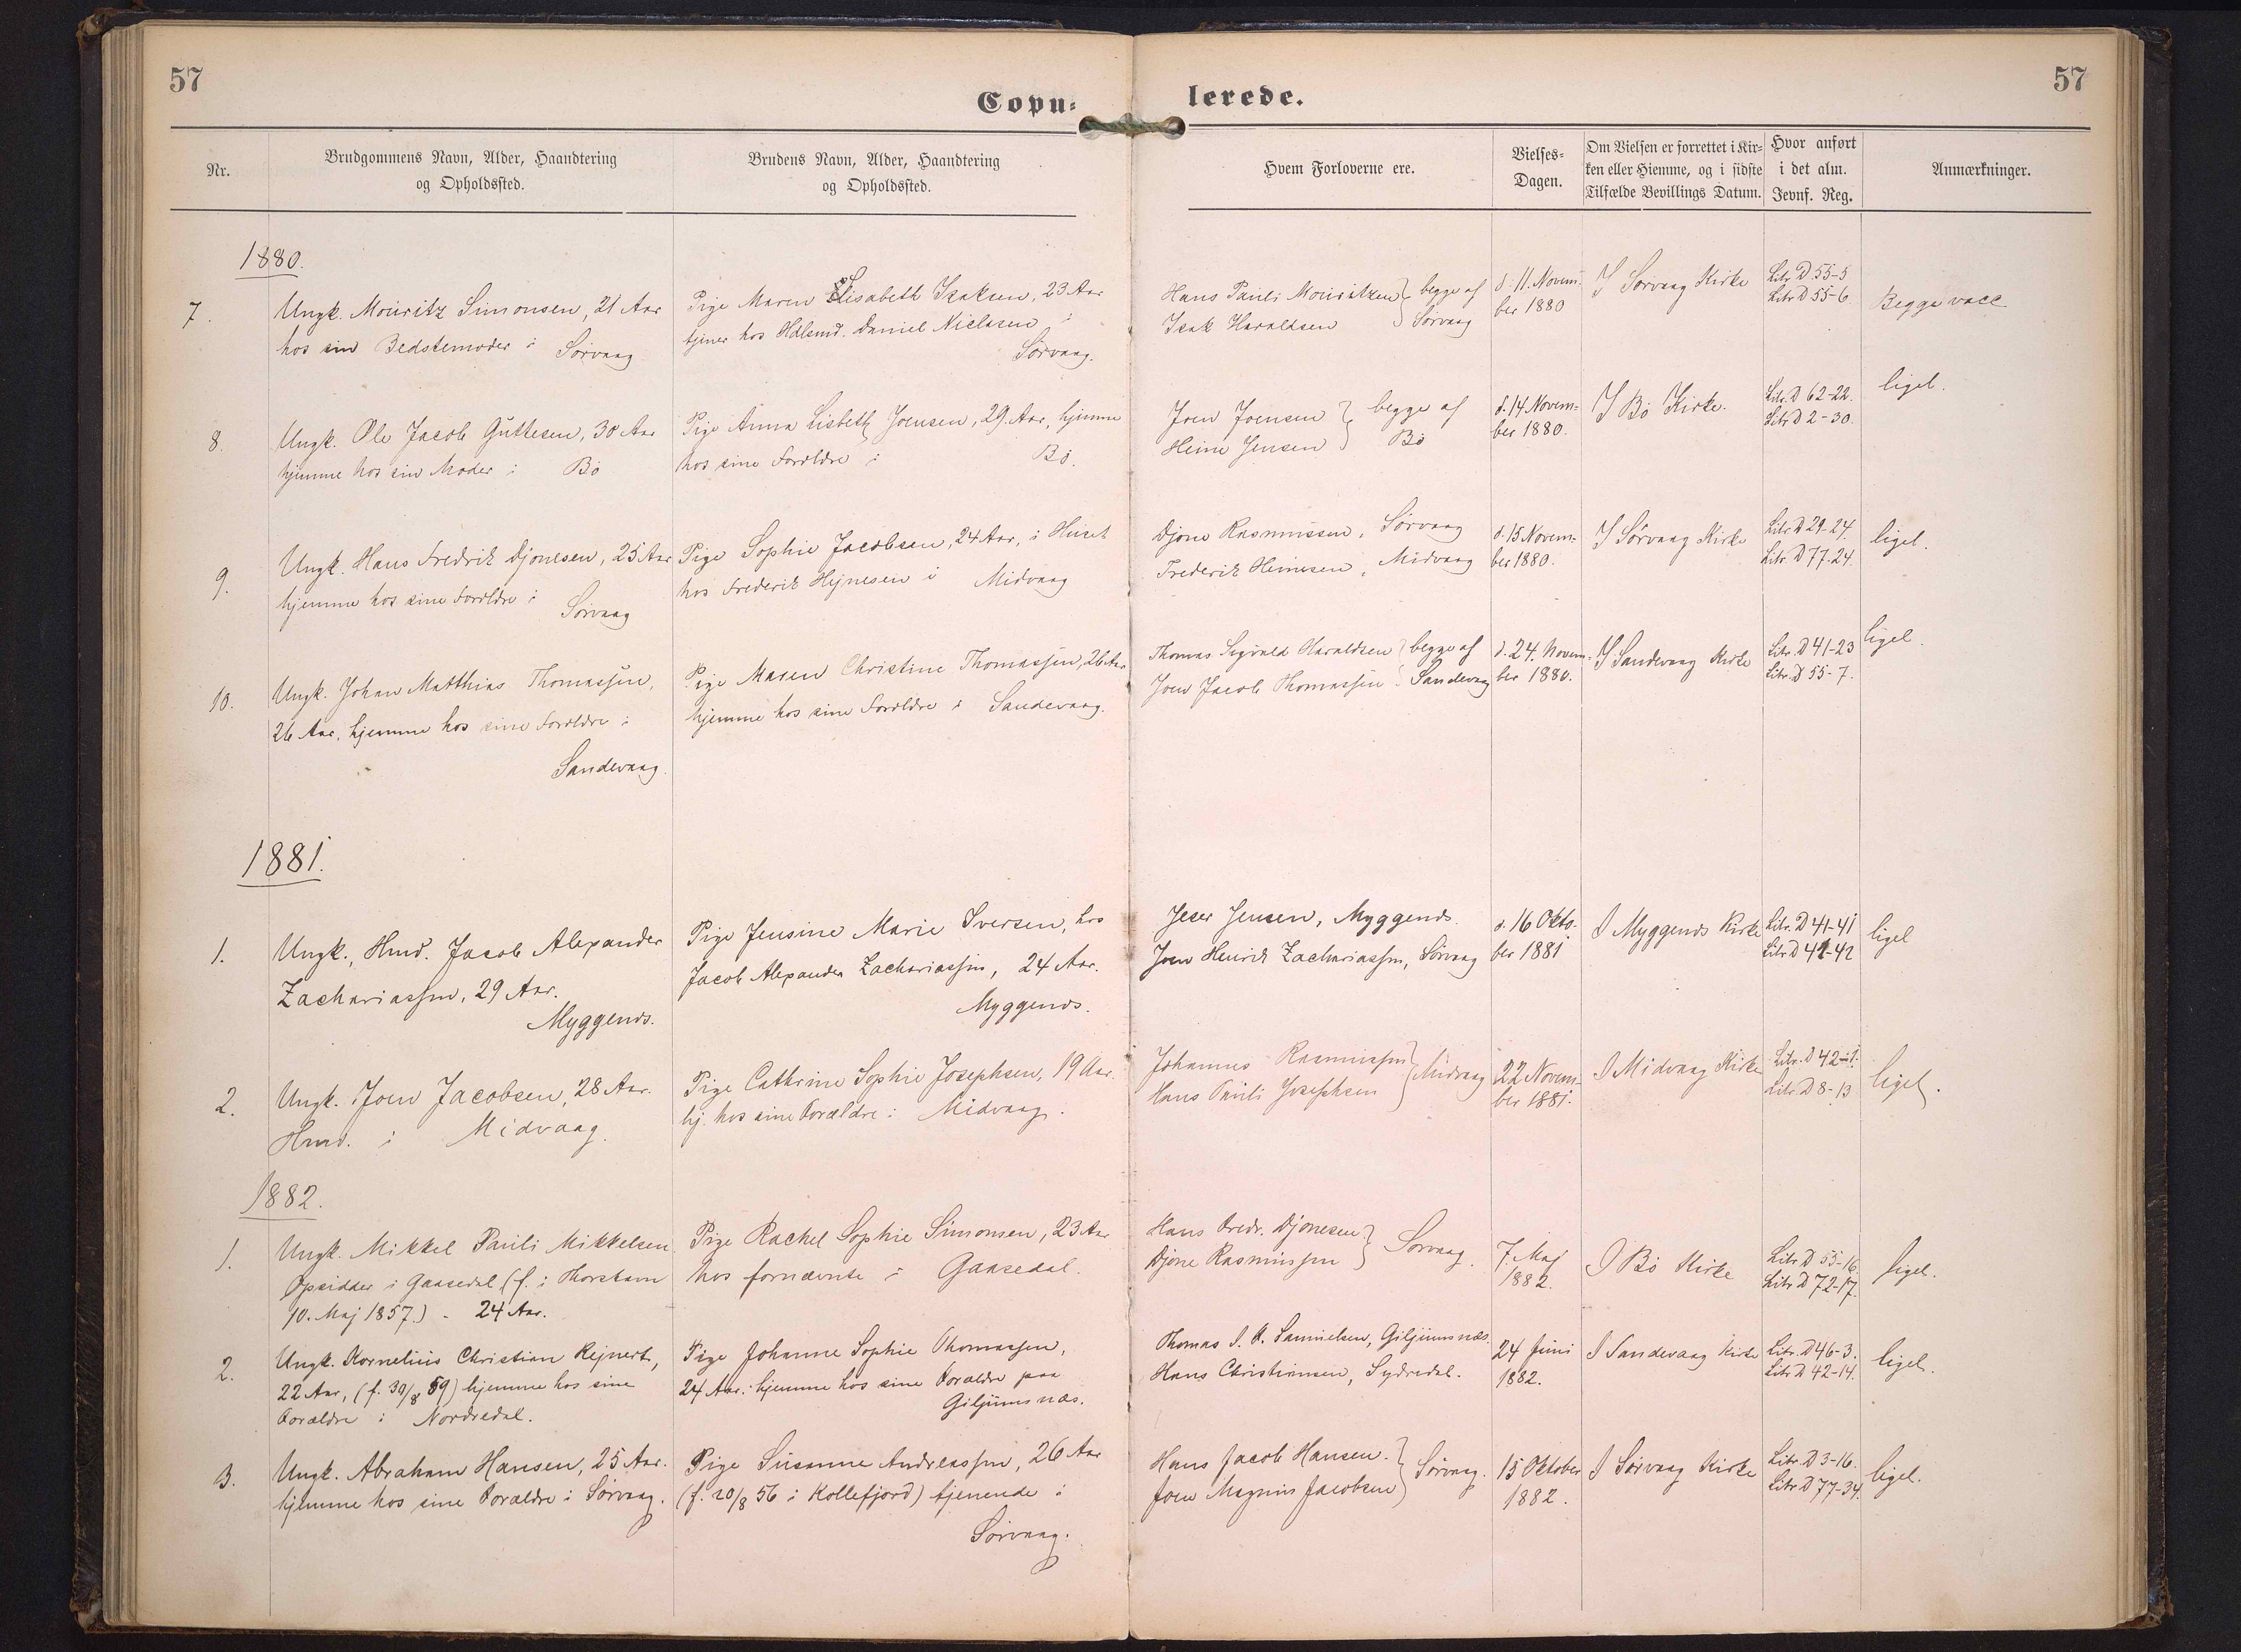 57
57
Copu=
lerede.
Nr.
Brudgommens Navn, Alder, Haandtering
og Opholdssted.
Brudens Navn, Alder, Haandtering
og Opholdssted.
Hvem Forloverne ere.
Vielses-
Dagen.
Om Vielsen er forrettet i Kir-
ken eller Hiemme, og i sidste
Tilfælde Bevillings Datum.
Hvor anført
i det alm.
Jevnf. Reg.
Anmærkninger.
1880.
7.
Ungk. Mouritz Simonsen, 21 Aar
hos sin Bedstemoder i Sörvaag
Pige Maren Elisabeth Isaksen, 23 Aar
tjener hos Hdlsmd. Daniel Nielasen i
Sörvaag.
Hans Pauli Mouritzen } begge af
Isak Haraldsen } Sörvaag
d. 11. Novem-
ber 1880
I Sörvaag Kirke
Litr. D 55-5
Litr. D 55-6
Begge vacc
8.
Ungk. Ole Jacob Guttesen, 30 Aar
hjemme hos sin Moder i Bö
Pige Anna Lisbeth Joensen, 29 Aar, hjemme
hos sine Forældre i Bö.
Joen Joensen } begge af
Heine Jensen } Bö
d. 14 Novem-
ber 1880.
I Bö Kirke.
Litr. D 62-22.
Litr. D 2-30.
ligel.
9.
Ungk. Hans Fredrik Djonesen, 25 Aar
hjemme hos sine Forældre i
Sörvaag
Pige Sophie Jacobsen, 24 Aar, i Huset
hos Frederik Hejnesen i Midvaag
Djone Rasmussen, Sörvaag
Frederik Heinesen, Midvaag
d. 15 Novem-
ber 1880.
I Sörvaag Kirke
Litr. D 29-24.
Litr. D 77-24.
ligel.
10.
Ungk. Johan Matthias Thomassen,
26 Aar, hjemme hos sine Forældre i
Sandevaag.
Pige Maren Christine Thomassen, 26 Aar
hjemme hos sine Forældre i Sandevaag.
Thomas Sigvald Haraldsen } begge af
Joen Jacob Thomassen } Sandevaag
d. 24. Novem-
ber 1880.
I Sandevaag Kirke
Litr. D 41-23
Litr. D 55-7.
ligel.
1881.
1.
Ungk., Hmd. Jacob Alexander
Zachariassen, 29 Aar.
Myggenæs.
Pige Jensine Marie Iversen, hos
Jacob Alexander Zachariassen, 24 Aar.
Myggenæs.
Jeser Jensen, Myggenæs
Joen Henrik Zachariassen, Sörvaag
d. 16 Okto-
ber 1881
I Myggenæs Kirke
Litr. D 41-41
Litr. D 41-42
ligel
2.
Ungk. Joen Jacobsen, 28 Aar.
Hmd. i Midvaag.
Pige Cathrine Sophie Josephsen, 19 Aar.
hj. hos sine Forældre i Midvaag.
Johannes Rasmussen } Midvaag
Hans Pauli Josephsen
22 Novem-
ber 1881.
I Midvaag Kirke
Litr. D 42-1.
Litr. D 8-13
ligel.
1882.
1.
Ungk. Mikkel Pauli Mikkelsen
Opsidder i Gaasedal (f. i Thorshavn
10. Maj 1857.) - 24 Aar.
Pige Rachel Sophie Simonsen, 23 Aar
hos fornævnte i Gaasedal.
Hans Fredr. Djonesen } Sörvaag.
Djone Rasmussen
7. Maj
1882.
I Bö Kirke
Litr. D 55-16.
Litr. D 72-17.
ligel.
2.
Ungk. Kornelius Christian Rejnert,
22 Aar, (f. 30/8 59) hjemme hos sine
Forældre i Nordredal.
Pige Johanne Sophie Thomassen,
24 Aar. hjemme hos sine Forældre paa
Giljumsnæs.
Thomas S. H. Samuelsen, Giljumsnæs.
Hans Christiansen, Sydredal.
24 Juni
1882.
I Sandevaag Kirke
Litr. D 46-3.
Litr. D 42-14.
ligel.
3.
Ungk. Abraham Hansen, 25 Aar.
hjemme hos sine Forældre i Sörvaag.
Pige Susanne Andreassen, 26 Aar
(f. 20/8 56 i Kollefjord) tjenende i
Sörvaag.
Hans Jacob Hansen. } Sörvaag.
Joen Magnus Jacobsen
15 Oktober
1882.
I Sörvaag Kirke
Litr. D 3-16.
Litr. D 77-34.
ligel.